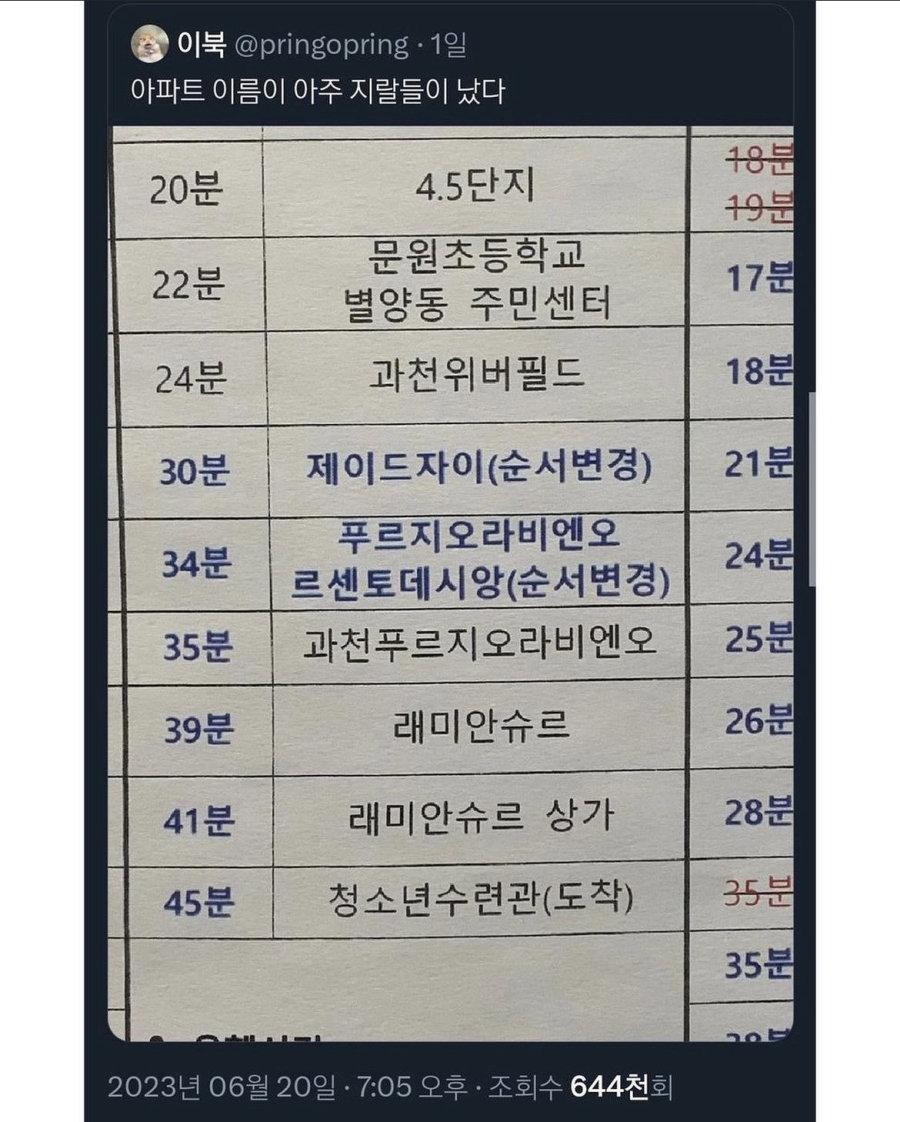 이북 @pringopring · 1일
아파트 이름이 아주 지랄들이 났다
20분 4.5단지 18분
19분
22분 문원초등학교
별양동 주민센터 17분
24분 과천위버필드 18분
30분 제이드자이(순서변경) 21분
34분 푸르지오라비엔오
르센토데시앙(순서변경) 24분
35분 과천푸르지오라비엔오 25분
39분 래미안슈르 26분
41분 래미안슈르 상가 28분
45분 청소년수련관(도착) 35분
35분
2023년 06월 20일 · 7:05 오후 · 조회수 644천회